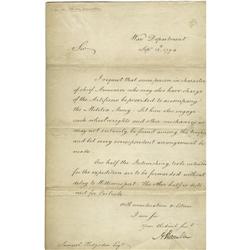 War Department
Sept. 12. 1794
Sir
I request that some person in character
of chief Armourer who may also have charge
of the Artificers be provided to accompany
the Militia Army. Let him also engage
such wheel wrights and other mechanics as
may not certainly be found among the troops
and let every correspondent arrangement be
made.
One half the Intrenching tools
for the expedition are to be forwarded without
delay to Williamsport. The other half
to Carlisle
With consideration & esteem
I am Sir
Your Obedient Servt
A Hamilton
Samuel Hodgdon Esqr